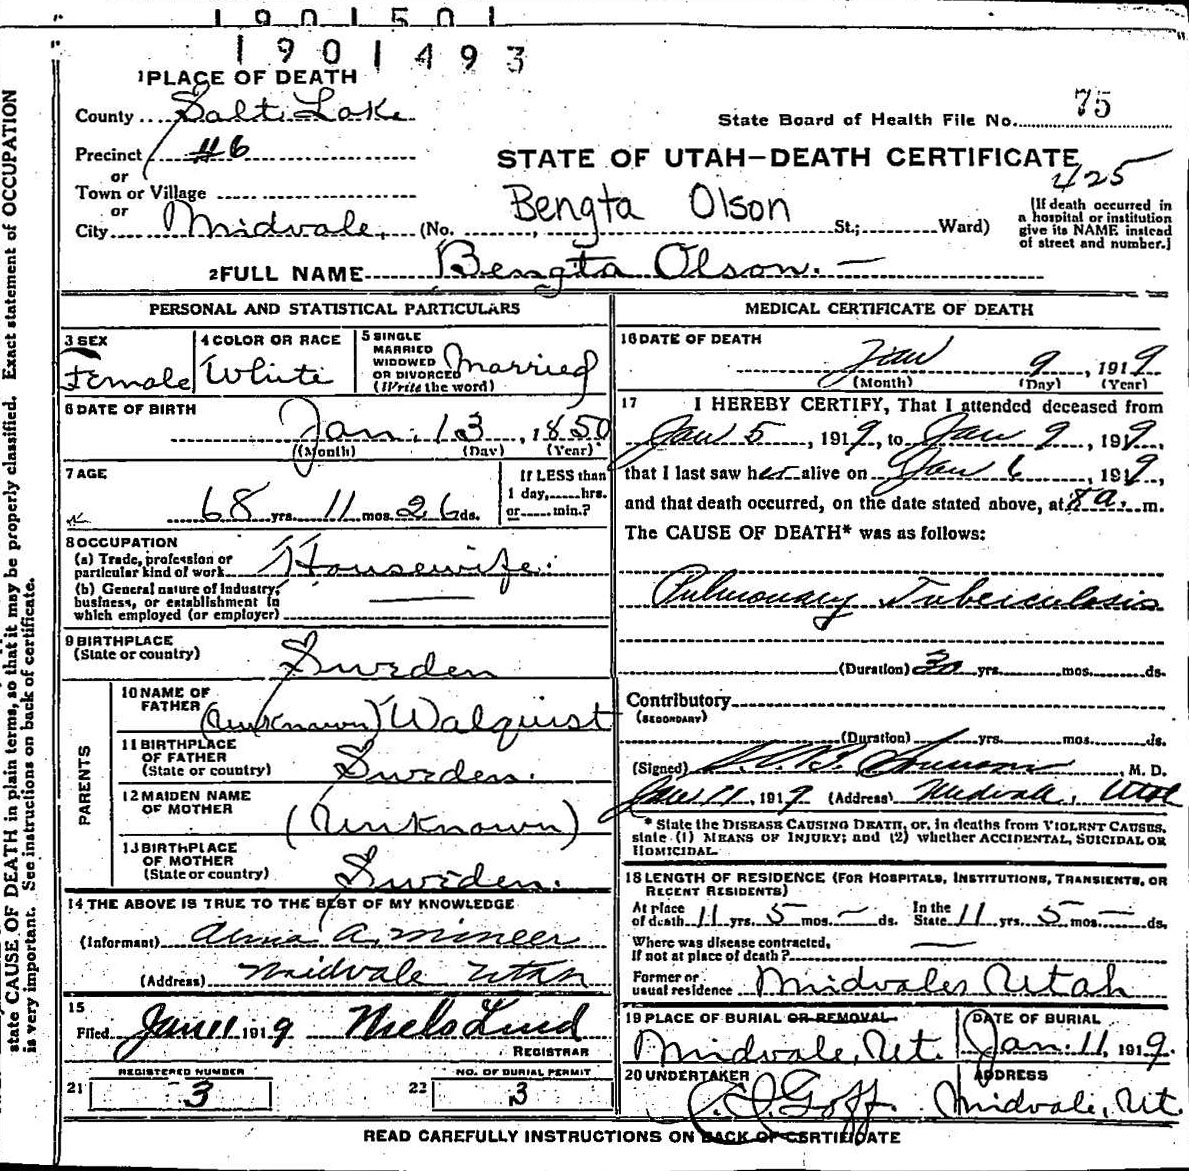 1901501
1901493
1 PLACE OF DEATH
County Salt Lake
State Board of Health File No. 75
Precinct #6
or
STATE OF UTAH—DEATH CERTIFICATE
425
Town or Village
or
Bengta Olson
City Midvale, (No. , St.; Ward)
(If death occurred in
a hospital or institution
give its NAME instead
of street and number.]
2 FULL NAME Bengta Olson. —
PERSONAL AND STATISTICAL PARTICULARS
3 SEX
Female
4 COLOR OR RACE
White
5 SINGLE
MARRIED
WIDOWED
OR DIVORCED
(Write the word)
Married
6 DATE OF BIRTH
Jan. 13, 1850
(Month) (Day) (Year)
7 AGE
68 yrs. 11 mos. 26 ds.
If LESS than
1 day, hrs.
or min.?
8 OCCUPATION
(a) Trade, profession or
particular kind of work Housewife.
(b) General nature of Industry,
business, or establishment in
which employed (or employer)
9 BIRTHPLACE
(State or country)
Sweden
PARENTS
10 NAME OF
FATHER
(Unknown) Walquist
11 BIRTHPLACE
OF FATHER
(State or country)
Sweden.
12 MAIDEN NAME
OF MOTHER
(Unknown)
13 BIRTHPLACE
OF MOTHER
(State or country)
Sweden.
14 THE ABOVE IS TRUE TO THE BEST OF MY KNOWLEDGE
(Informant) Anna A. Mineer
(Address) Midvale Utah
15
Filed Jan 11 1919 Niels Lind
REGISTRAR
REGISTERED NUMBER
21 3
NO. OF BURIAL PERMIT
22 3
MEDICAL CERTIFICATE OF DEATH
16 DATE OF DEATH
Jan 9, 1919
(Month) (Day) (Year)
17 I HEREBY CERTIFY, That I attended deceased from
Jan 5, 1919, to Jan 9, 1919,
that I last saw her alive on Jan 6, 1919,
and that death occurred, on the date stated above, at 8 a. m.
The CAUSE OF DEATH* was as follows:
Pulmonary Tuberculosis
(Duration) 30 yrs. mos. ds.
Contributory
(SECONDARY)
(Duration) yrs. mos. ds.
(Signed) , M. D.
Jan 11, 1919 (Address) Midvale, Utah
* State the DISEASE CAUSING DEATH, or, in deaths from VIOLENT CAUSES,
state (1) MEANS OF INJURY; and (2) whether ACCIDENTAL, SUICIDAL OR
HOMICIDAL.
18 LENGTH OF RESIDENCE (FOR HOSPITALS, INSTITUTIONS, TRANSIENTS, OR
RECENT RESIDENTS)
At place
of death 11 yrs. 5 mos. — ds.
In the
State 11 yrs. 5 mos. — ds.
Where was disease contracted,
If not at place of death? —
Former or
usual residence Midvale, Utah
19 PLACE OF BURIAL OR REMOVAL
Midvale, Ut.
DATE OF BURIAL
Jan. 11, 1919.
20 UNDERTAKER
Goff.
ADDRESS
Midvale, Ut.
READ CAREFULLY INSTRUCTIONS ON BACK OF CERTIFICATE
state CAUSE OF DEATH in plain terms, so that it may be properly classified. Exact statement of OCCUPATION
is very important. See instructions on back of certificate.